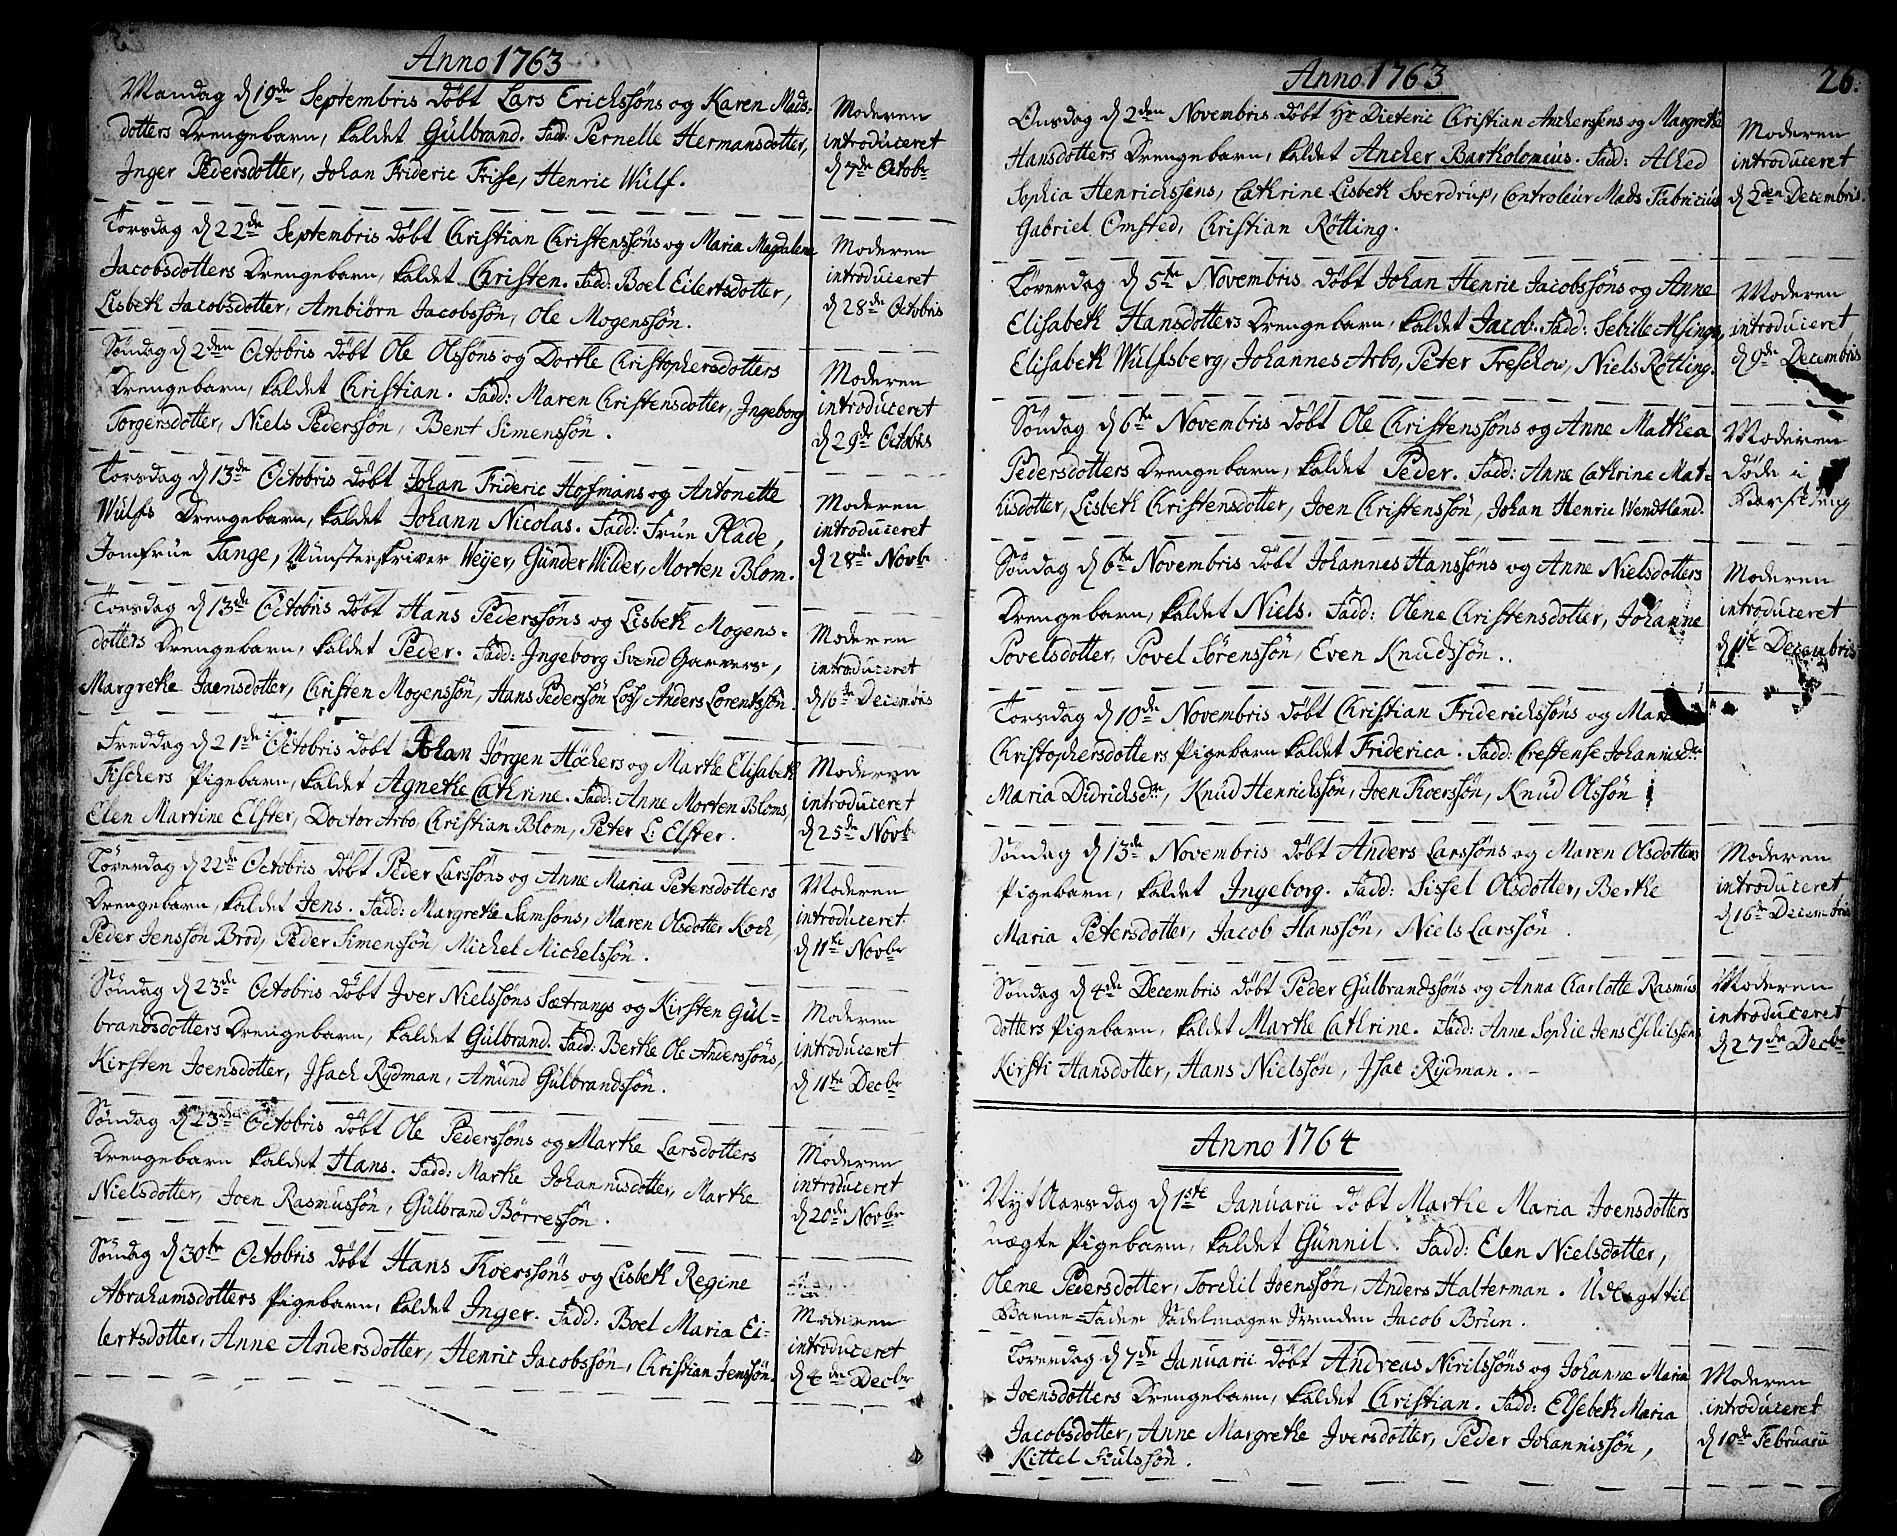 Anno 1763
Mandag d 19de Septembris døbt Lars Erichssøns og Karen Mads-
dotters Drengebarn, kaldet Gülbrand. Fadd: Pernelle Hermansdotter,
Inger Pedersdotter, Johan Frideric Frise, Henric Wülf.
Moderen
introduceret
d 7de Octobr
Torsdag d 22de Septembris døbt Christian Christenssøns og Maria Magdalena
Jacobsdotters Drengebarn, kaldet Christen. Fadd: Boel Eilertsdotter,
Lisbeth Jacobsdotter, Ambiørn Jacobssøn, Ole Mogenssøn.
Moderen
introduceret
d 28de Octobris
Søndag d 2den Octobris døbt Ole Olssøns og Dorthe Christophersdotters
Drengebarn, kaldet Christian. Fadd: Maren Christensdotter, Ingeborg
Torgersdotter, Niels Pederssøn, Bent Simenssøn.
Moderen
introduceret
d 29de Octobris
Torsdag d 13de Octobris døbt Johan Frideric Hofmans og Antonette
Wülfs Drengebarn, kaldet Johann Nicolas. Fadd: Frue Plade,
Jomfrue Tange, Münsterskriver Weyer, Günder Wilder, Morten Blom.
Moderen
introduceret
d 28de Novbr
Torsdag d 13de Octobris døbt Hans Pederssøns og Lisbeth Mogens-
dotters Drengebarn, kaldet Peder. Fadd: Ingeborg Svend Garvers,
Margrethe Joensdotter, Christen Mogenssøn, Hans Pederssøn Loss, Anders Lorentssøn.
Moderen
introduceret
d 16de Decembris
Freddag d 21de Octobris døbt Johan Jørgen Høckers og Marthe Elisabeth
Fischers Pigebarn, kaldet Agnethe Cathrine. Fadd: Anne Morten Bloms,
Elen Martine Elster, Doctor Arbo, Christian Blom, Peter L: Elster.
Moderen
introduceret
d 25de Novbr
Løverdag d 22de Octobris døbt Peder Larssøns og Anne Maria Petersdotters
Drengebarn, kaldet Jens. Fadd: Margrethe Samsons, Maren Olsdotter Koch,
Peder Jenssøn Brod, Peder Simenssøn, Michel Michelssøn.
Moderen
introduceret
d 11te Novbr
Søndag d 23de Octobris døbt Iver Nielssøns Sætrangs og Kirsten Gül-
brandsdotters Drengebarn, kaldet Gülbrand. Fadd: Berthe Ole Anderssøns,
Kirsten Joensdotter, Isach Rydman, Amund Gülbrandssøn.
Moderen
introduceret
d 11te Decbr
Søndag d 23de Octobris døbt Ole Pederssøns og Marthe Larsdotters
Drengebarn kaldet Hans. Fadd: Marthe Johannisdotter, Marthe
Nielsdotter, Joen Rasmussøn, Gülbrand Børressøn.
Moderen
introduceret
d 20de Novbr
Søndag d 30te Octobris døbt Hans Koerssøns og Lisbeth Regine
Abrahamsdotters Pigebarn, kaldet Inger. Fadd: Boel Maria Ei-
lertsdotter, Anne Andersdotter, Henric Jacobssøn, Christian Jenssøn.
Moderen
introduceret
d 4de Decbr
Anno 1763
26.
Onsdag d 2den Novembris døbt Hr Dieteric Christian Ancherssens og Margrethe
Hansdotters Drengebarn, kaldet Ancher Bartholomius. Fadd: Alhed
Sophia Henrichssens, Cathrine Lisbeth Sverdrup, Controleur Mads Fabricius
Gabriel Omsted, Christian Røtting.
Moderen
introduceret
d 2den Decembris.
Løverdag d 5te Novembris døbt Johan Henric Jacobssøns og Anne
Elisabeth Hansdotters Drengebarn, kaldet Jacob. Fadd: Sebille Alsings,
Elisabeth Wülfsberg, Johannes Arbo, Peter Treschow, Niels Røtting.
Moderen
introduceret
d 9de Decembris
Søndag d 6te Novembris døbt Ole Christenssøns og Anne Mathea
Pedersdotters Drengebarn, kaldet Peder. Fadd: Anne Cathrine Mat-
hisdotter, Lisbeth Christensdotter, Joen Christenssøn, Johan Henric Wendtland.
Moderen
døde i
Barselseng
Søndag d 6te Novembris døbt Johannes Hanssøns og Anne Nielsdotters
Drengebarn, kaldet Niels. Fadd: Olene Christensdotter, Johanne
Povelsdotter, Povel Sørenssøn, Even Knudssøn.
Moderen
introduceret
d 11te Decembris
Torsdag d 10de Novembris døbt Christian Friderichssøns og Mar
Christophersdotters Pigebarn kaldet Friderica. Fadd: Crestense Johannisdtr
Maria Didrichsdtr, Knud Henrichssøn, Joen Koerssøn, Knud Olssøn
Søndag d 13de Novembris døbt Anders Larssøns og Maren Olsdotters
Pigebarn, kaldet Ingeborg. Fadd: Sissel Olsdotter, Berthe
Maria Petersdotter, Jacob Hanssøn, Niels Larssøn.
Moderen
introduceret
d 16de Decembris
Søndag d 4de Decembris døbt Peder Gülbrandssøns og Anna Charlotte Rasmus
dotters Pigebarn, kaldet Marthe Cathrine. Fadd: Anne Sophie Jens Eschilssøns
Kirsti Hansdotter, Hans Nielssøn, Isac Rydman.
Moderen
introduceret
d 27de Decbr
Anno 1764
Nyt Aarsdag d 1ste Januarii døbt Marthe Maria Joensdotters
uægte Pigebarn, kaldet Günnil. Fadd: Elen Nielsdotter,
Olene Pedersdotter, Torchil Joenssøn, Anders Halterman. Udlagt til
Barne-Fader Sadelmager Svenden Jacob Brün.
Løverdag d 7de Januarii døbt Andreas Nirilssøns og Johanne Maria
Joensdotters Drengebarn, kaldet Christian. Fadd: Elsebeth Maria
Jacobsdotter, Anne Margrethe Iversdotter, Peder Johannissøn,
Kittel Kiulssøn.
Moderen
introduceret
d 10de Februarii